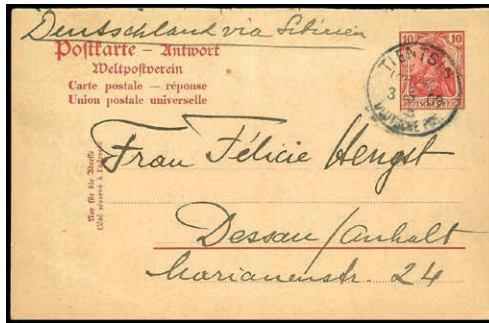 Deutschland via Sibirien
Postkarte – Antwort
Weltpostverein
Carte postale — réponse
Union postale universelle
10 10
TIENTSIN
DEUTSCHE POST
Nur für die Adresse
Côté réservé à l'adresse
Frau Félicie Hengst
Dessau/Anhalt
Marianenstr. 24